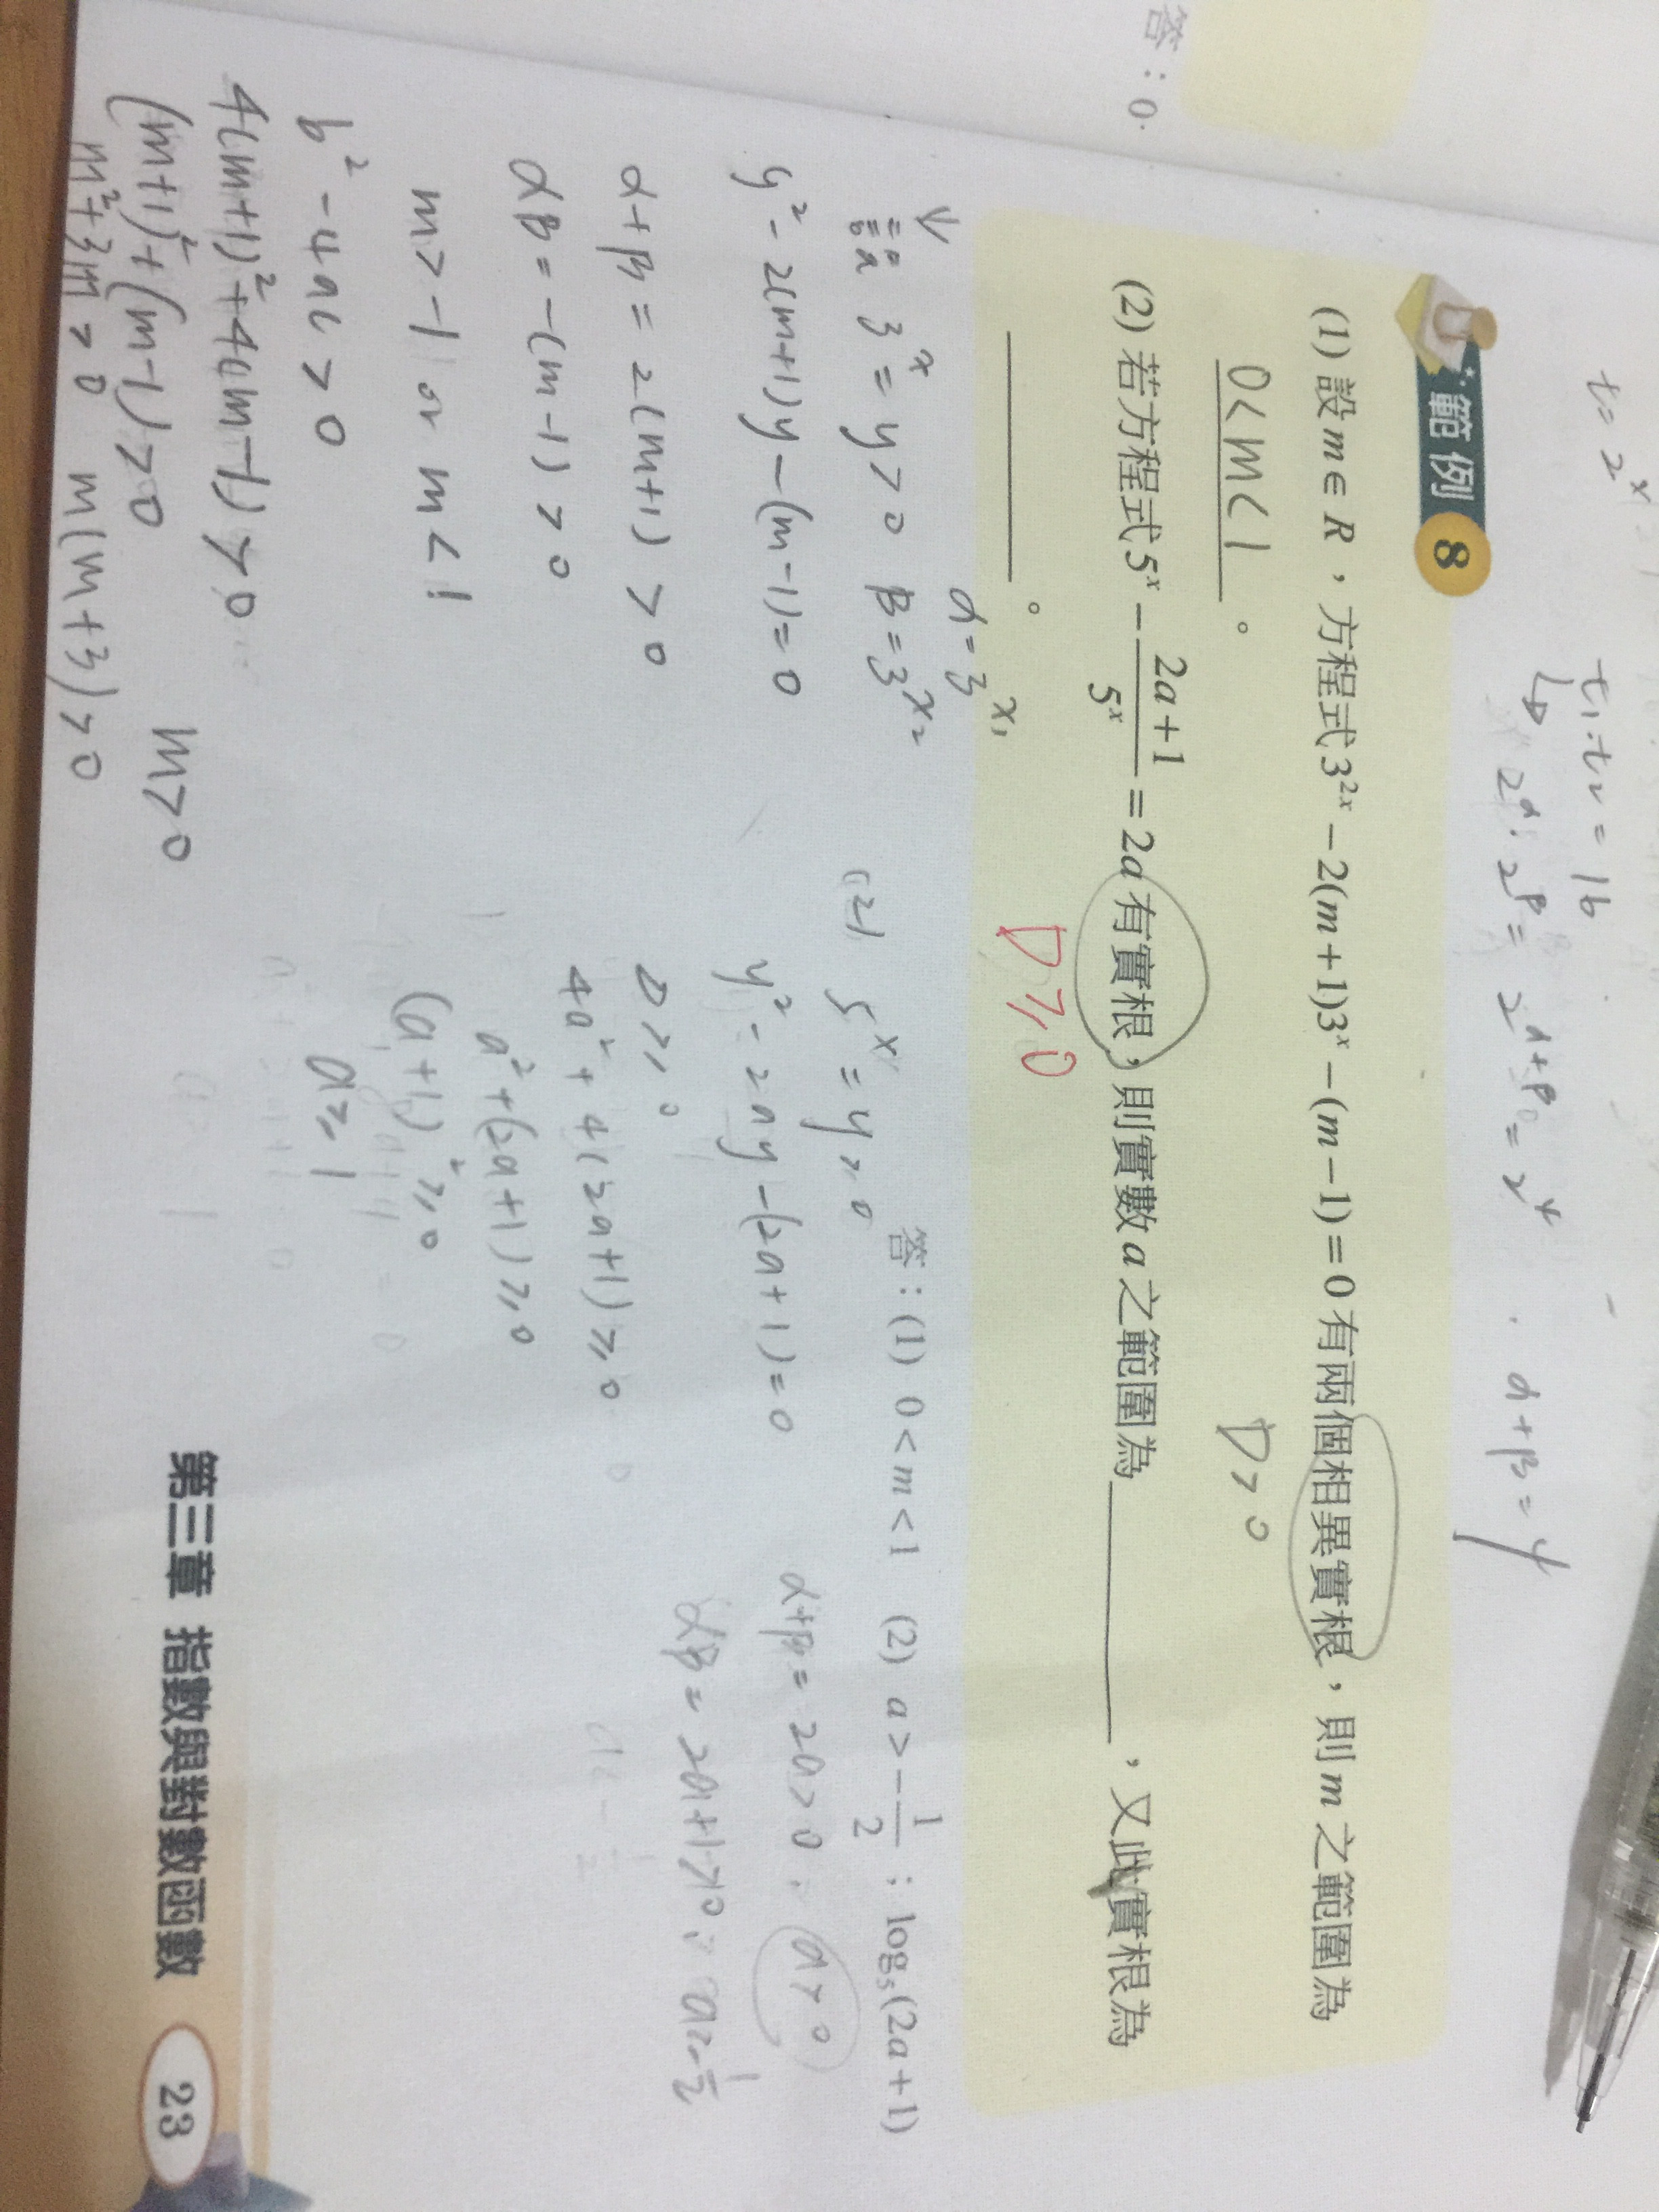 答：0.
t = 2ˣ
t₁·t₂ = 16
2ᵅ·2ᵝ = 2ᵅ⁺ᵝ = 2⁴
α+β = 4
範例 8
(1) 設 m ∈ R，方程式 3²ˣ − 2(m+1)3ˣ − (m−1) = 0 有兩個相異實根，則 m 之範圍為
0<m<1 。
D>0
(2) 若方程式 5ˣ − (2a+1)/5ˣ = 2a 有實根，則實數 a 之範圍為______，又此實根為
______。
D≥0
答：(1) 0<m<1 (2) a>−1/2；log₅(2a+1)
α=3ˣ¹
3ˣ = y > 0 β=3ˣ²
y² − 2(m+1)y − (m−1) = 0
α+β = 2(m+1) > 0
αβ = −(m−1) > 0
m > −1 or m < 1
b² − 4ac > 0
4(m+1)² + 4(m−1) > 0
(m+1)² + (m−1) > 0
m > 0
m² + 3m > 0 m(m+3) > 0
(2) 5ˣ = y > 0
y² − 2ay − (2a+1) = 0
D ≥ 0
4a² + 4(2a+1) ≥ 0
a² + (2a+1) ≥ 0
(a+1)² ≥ 0
α+β = 2a > 0
a > 0
第三章 指數與對數函數 23